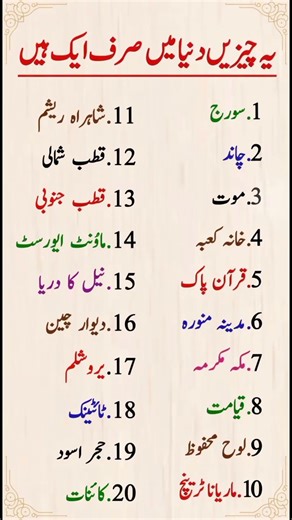 یہ چیزیں دنیا میں صرف ایک ہیں
1.سورج
2.چاند
3.موت
4.خانہ کعبہ
5.قرآن پاک
6.مدینہ منورہ
7.مکہ مکرمہ
8.قیامت
9.لوح محفوظ
10.ماریانا ٹرینچ
11.شاہراہ ریشم
12.قطب شمالی
13.قطب جنوبی
14.ماؤنٹ ایورسٹ
15.نیل کا دریا
16.دیوار چین
17.یروشلم
18.ٹائٹینک
19.حجر اسود
20.کائنات